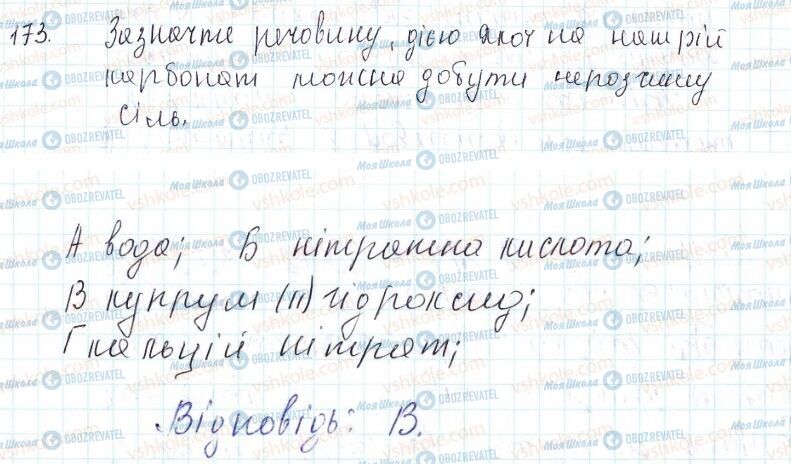 173. Зазначте речовину, дією якої на натрій
карбонат можна добути нерозчинну
сіль.
А вода; Б нітратна кислота;
В купрум (II) гідроксид;
Г кальцій нітрат;
Відповідь: В.